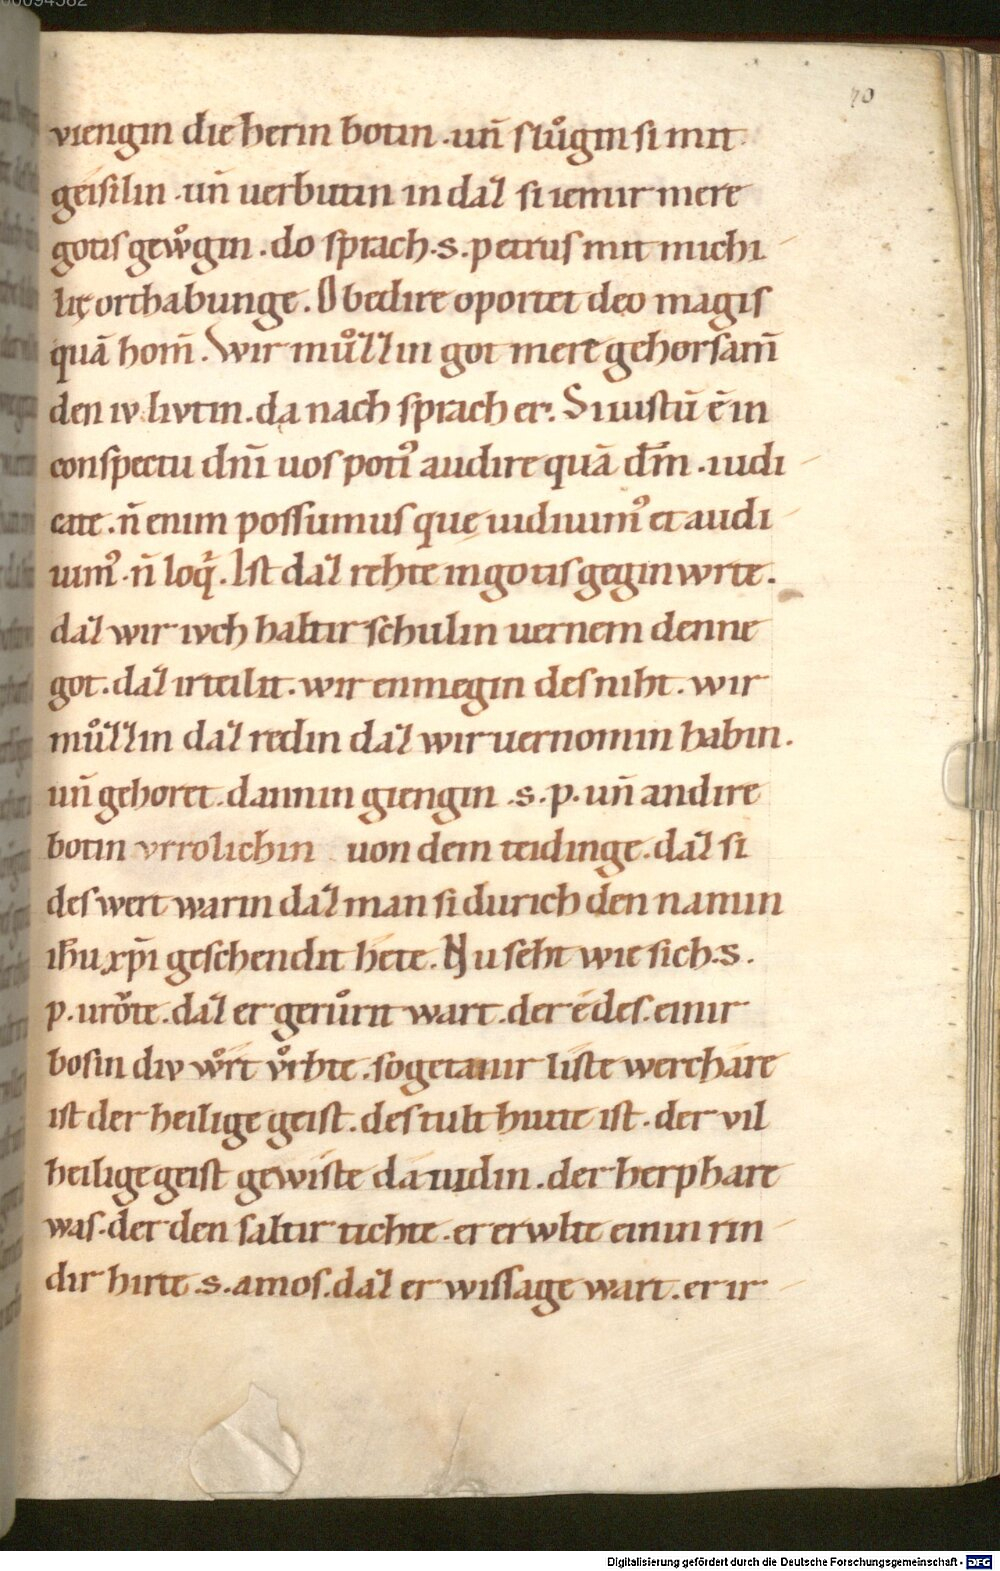 00094582
70
viengin die herin botin ·un̄ ſlůgin ſi mit
geiſilin ·un̄ uerbutin in daʒ ſi iemir mere
gotiſ gewͦgin . do ſprach .s. petruſ mit michi
lię orthabunge . Obedire oportet deo magiſ
quā hom̄ . Wir můʒʒin got mere gehorſam̄
den iv livtin . da nach ſprach er . Si iuſtū ē in
conſpectu dn̄i uoſ poti᾿ audire quā dm̄ . iudi
cate . n̄ enim poſſumuſ quę uidiuim᾿ et audi
uim᾿ · n̄ loq̄ . Iſt daʒ rehte in gotiſ geginwrte .
daʒ wir ivch haltir ſchulin uernem denne
got . daʒ irteilit . wir enmegin deſ niht . wir
můʒʒin daʒ redin daʒ wir uernomin habin .
un̄ gehoret . dannin giengin .s. p. un̄ andire
botin vrrolichin uon dem teidinge . daʒ ſi
deſ wert warin daʒ man ſi durich den namin
ih̄u xp̄i geſchendit hete . Nu ſeht wie ſich .s.
p. urŏte . daʒ er gerůrit wart . der é deſ . einir
boſin div wͦrt vͦrhte . ſogetanir liſte werchare
iſt der heilige geiſt . deſ tult hiute iſt . der vil
heilige geiſt gewiſte dauidin . der herphare
waſ . der den ſaltir tichte . er erwlte einin rin
dir hirte .s. amoſ . daʒ er wiſſage wart . er ir
Digitalisierung gefördert durch die Deutsche Forschungsgemeinschaft - DFG